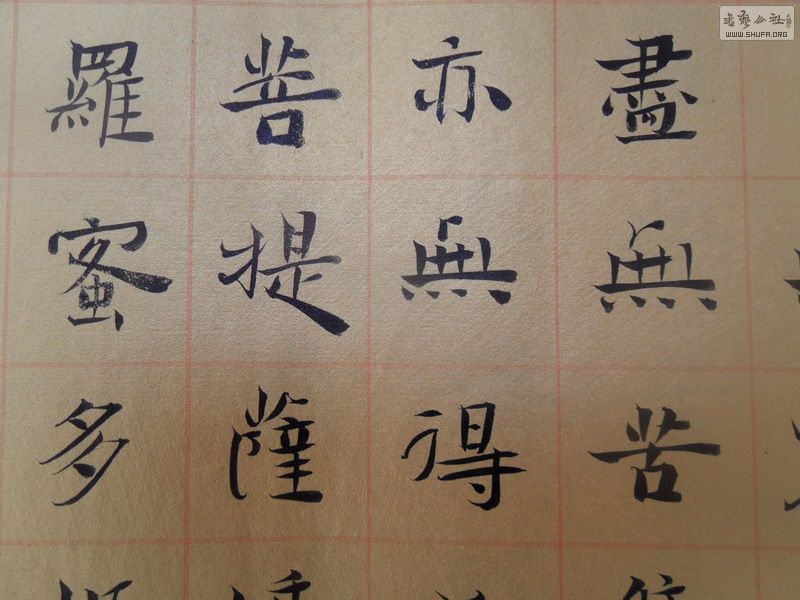 盡無苦
亦無得
菩提薩
羅蜜多
书艺公社
WWW.SHUFA.ORG